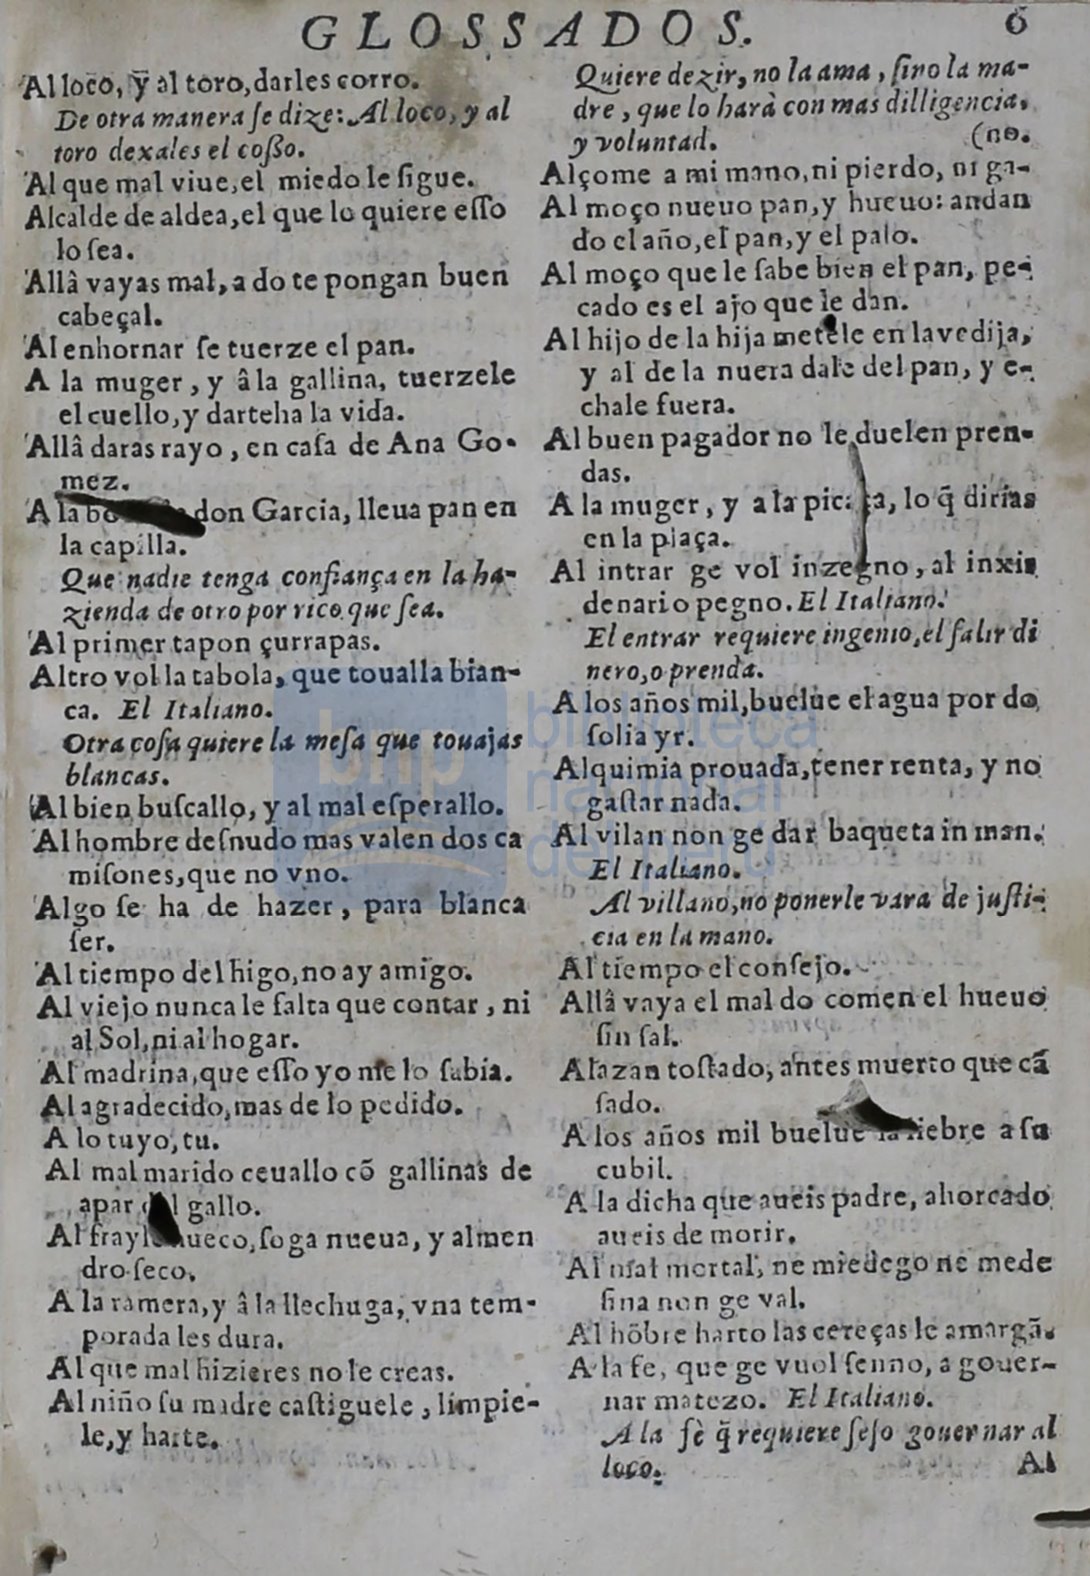 GLOSSADOS. 6
Al loco, y al toro, darles corro.
De otra manera ſe dize: Al loco, y al
toro dexales el coſſo.
Al que mal viue, el miedo le ſigue.
Alcalde de aldea, el que lo quiere eſſo
lo ſea.
Allâ vayas mal, a do te pongan buen
cabeçal.
Al enhornar ſe tuerze el pan.
A la muger, y â la gallina, tuerzele
el cuello, y darteha la vida.
Allâ daras rayo, en caſa de Ana Go-
mez.
A la don Garcia, lleua pan en
la capilla.
Que nadie tenga confiança en la ha-
zienda de otro por rico que ſea.
Al primer tapon çurrapas.
Altro vol la tabola, que toualla bian-
ca. El Italiano.
Otra coſa quiere la meſa que touajas
blancas.
Al bien buſcallo, y al mal eſperallo.
Al hombre deſnudo mas valen dos ca
miſones, que no vno.
Algo ſe ha de hazer, para blanca
ſer.
Al tiempo del higo, no ay amigo.
Al viejo nunca le falta que contar, ni
al Sol, ni al hogar.
Al madrina, que eſſo yo me lo ſabia.
Al agradecido, mas de lo pedido.
A lo tuyo, tu.
Al mal marido ceuallo cõ gallinas de
apar del gallo.
Al frayle hueco, ſoga nueua, y almen
dro ſeco.
A la ramera, y â la llechuga, vna tem-
porada les dura.
Al que mal hizieres no le creas.
Al niño ſu madre caſtiguele, limpie-
le, y harte.
Quiere dezir, no la ama, ſino la ma-
dre, que lo harà con mas dilligencia,
y voluntad. (no.
Alçome a mi mano, ni pierdo, ni ga-
Al moço nueuo pan, y hueuo: andan
do el año, el pan, y el palo.
Al moço que le ſabe bien el pan, pe-
cado es el ajo que le dan.
Al hijo de la hija metele en la vedija,
y al de la nuera dale del pan, y e-
chale fuera.
Al buen pagador no le duelen pren-
das.
A la muger, y a la picaça, lo q̃ dirias
en la plaça.
Al intrar ge vol inzegno, al inxir
denario pegno. El Italiano.
El entrar requiere ingenio, el ſalir di
nero, o prenda.
A los años mil, buelue el agua por do
ſolia yr.
Alquimia prouada, tener renta, y no
gaſtar nada.
Al vilan non ge dar baqueta in man.
El Italiano.
Al villano, no ponerle vara de juſti-
cia en la mano.
Al tiempo el conſejo.
Allâ vaya el mal do comen el hueuo
ſin ſal.
Alazan toſtado, antes muerto que cã
ſado.
A los años mil buelue la liebre a ſu
cubil.
A la dicha que aueis padre, ahorcado
aueis de morir.
Al mal mortal, ne miedego ne mede
ſina non ge val.
Al hõbre harto las cereças le amargã.
A la fe, que ge vuol ſenno, a gouer-
nar matezo. El Italiano.
A la fè q̃ requiere ſeſo gouernar al
loco. Al
biblioteca
nacional
del perú
bnp